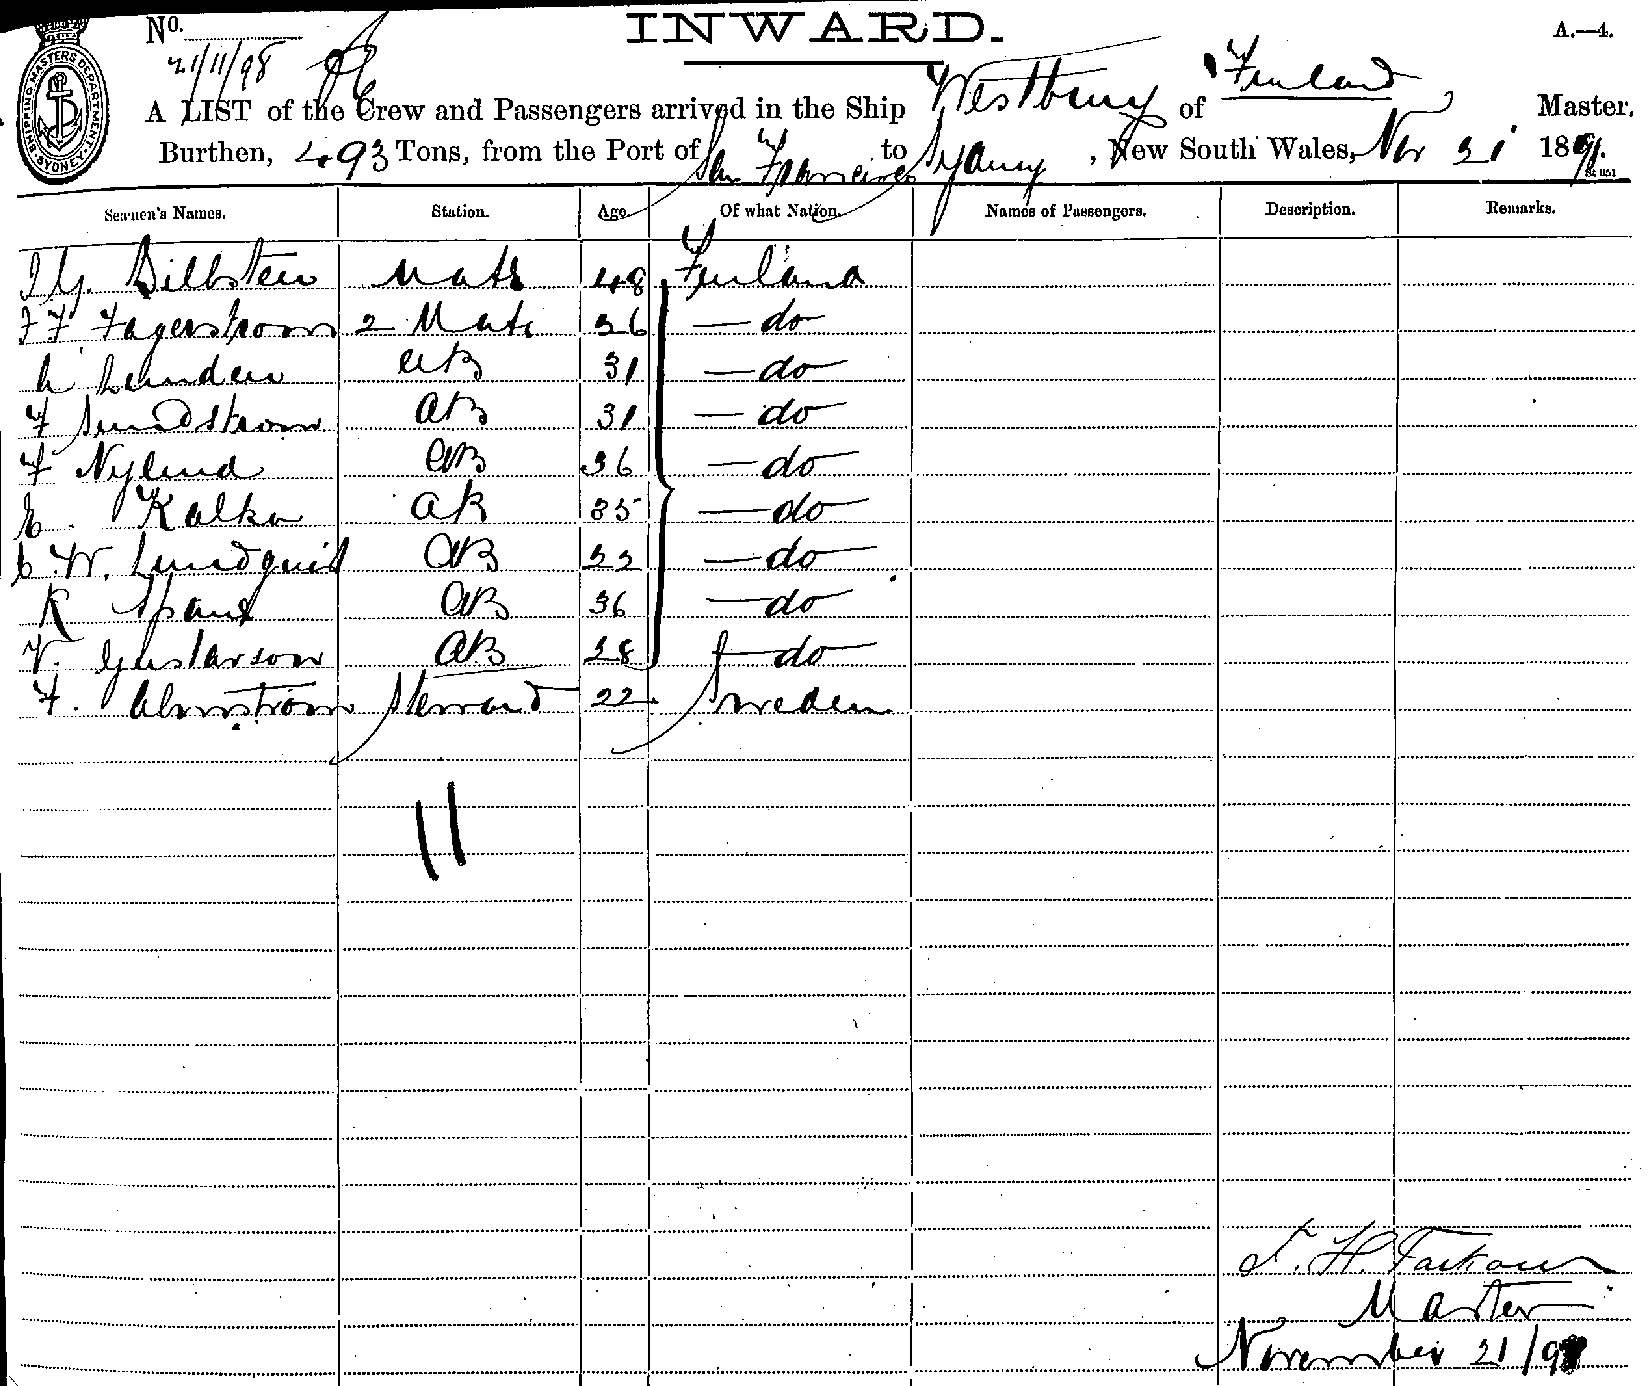 No.
INWARD.
A.—4.
SHIPPING MASTERS DEPARTMENT SYDNEY
21/11/98
A LIST of the Crew and Passengers arrived in the Ship Westbury of Finland Master,
Burthen, 493 Tons, from the Port of San Francisco to Sydney, New South Wales, Nov 21 189
Seamen's Names. Station. Age Of what Nation. Names of Passengers. Description. Remarks.
Mate 48 Finland
F F. Fagerstrom 2 Mate 36 — do
Linden AB 31 — do
F Sundstrom AB 31 — do
F Nylund AB 36 — do
E. Kalka AB 35 — do
C W. Lundquist AB 22 — do
K AB 36 — do
V. Gustavson AB 28 — do
F. Almstrom Steward 22 Sweden
11
F. H.
Master
November 21/98